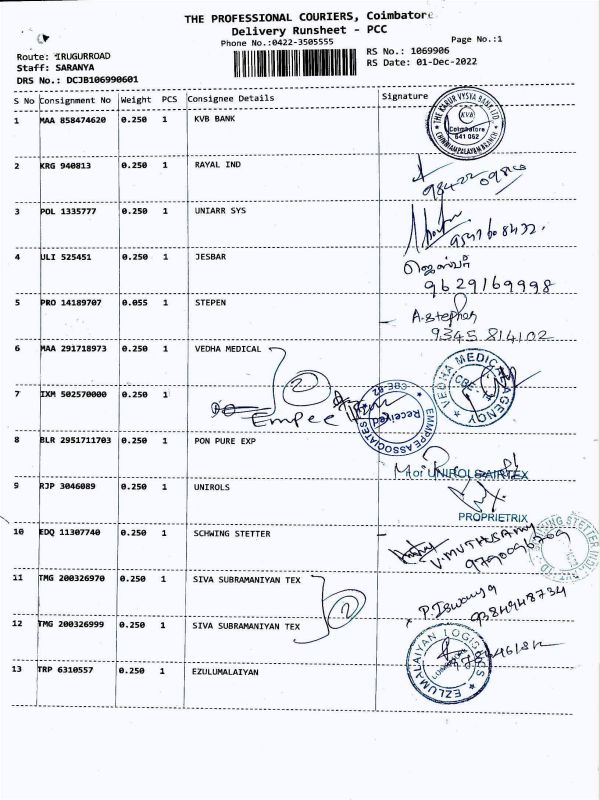 THE PROFESSIONAL COURIERS, Coimbatore
Delivery Runsheet - PCC
Phone No.:0422-3505555
Page No.:1
Route: IRUGURROAD
RS No.: 1069906
Staff: SARANYA
RS Date: 01-Dec-2022
DRS No.: DCJB106990601
S No Consignment No Weight PCS Consignee Details Signature
1 MAA 858474620 0.250 1 KVB BANK
THE KARUR VYSYA BANK LTD
KVB
Coimbatore
641 062
CHINNIAMPALAYAM BRANCH
2 KRG 940813 0.250 1 RAYAL IND
3 POL 1335777 0.250 1 UNIARR SYS
4 ULI 525451 0.250 1 JESBAR
9629169998
5 PRO 14189707 0.055 1 STEPEN
A.Stephen
9345 814102
6 MAA 291718973 0.250 1 VEDHA MEDICAL
VEDHA MEDICAL AGENCY
7 IXM 502570000 0.250 1
2
Empee
CBE-62
Received
EMMPEE ASSOCIATES
8 BLR 2951711703 0.250 1 PON PURE EXP
9 RJP 3046089 0.250 1 UNIROLS
UNIROLS AIRTEX
PROPRIETRIX
10 EDQ 11307740 0.250 1 SCHWING STETTER
V.MUTHUSAMY
9790096709
11 TMG 200326970 0.250 1 SIVA SUBRAMANIYAN TEX
2
P. Iswarya
9384948734
12 TMG 200326999 0.250 1 SIVA SUBRAMANIYAN TEX
13 TRP 6310557 0.250 1 EZULUMALAIYAN
EZLUMALAIYAN LOGISTICS